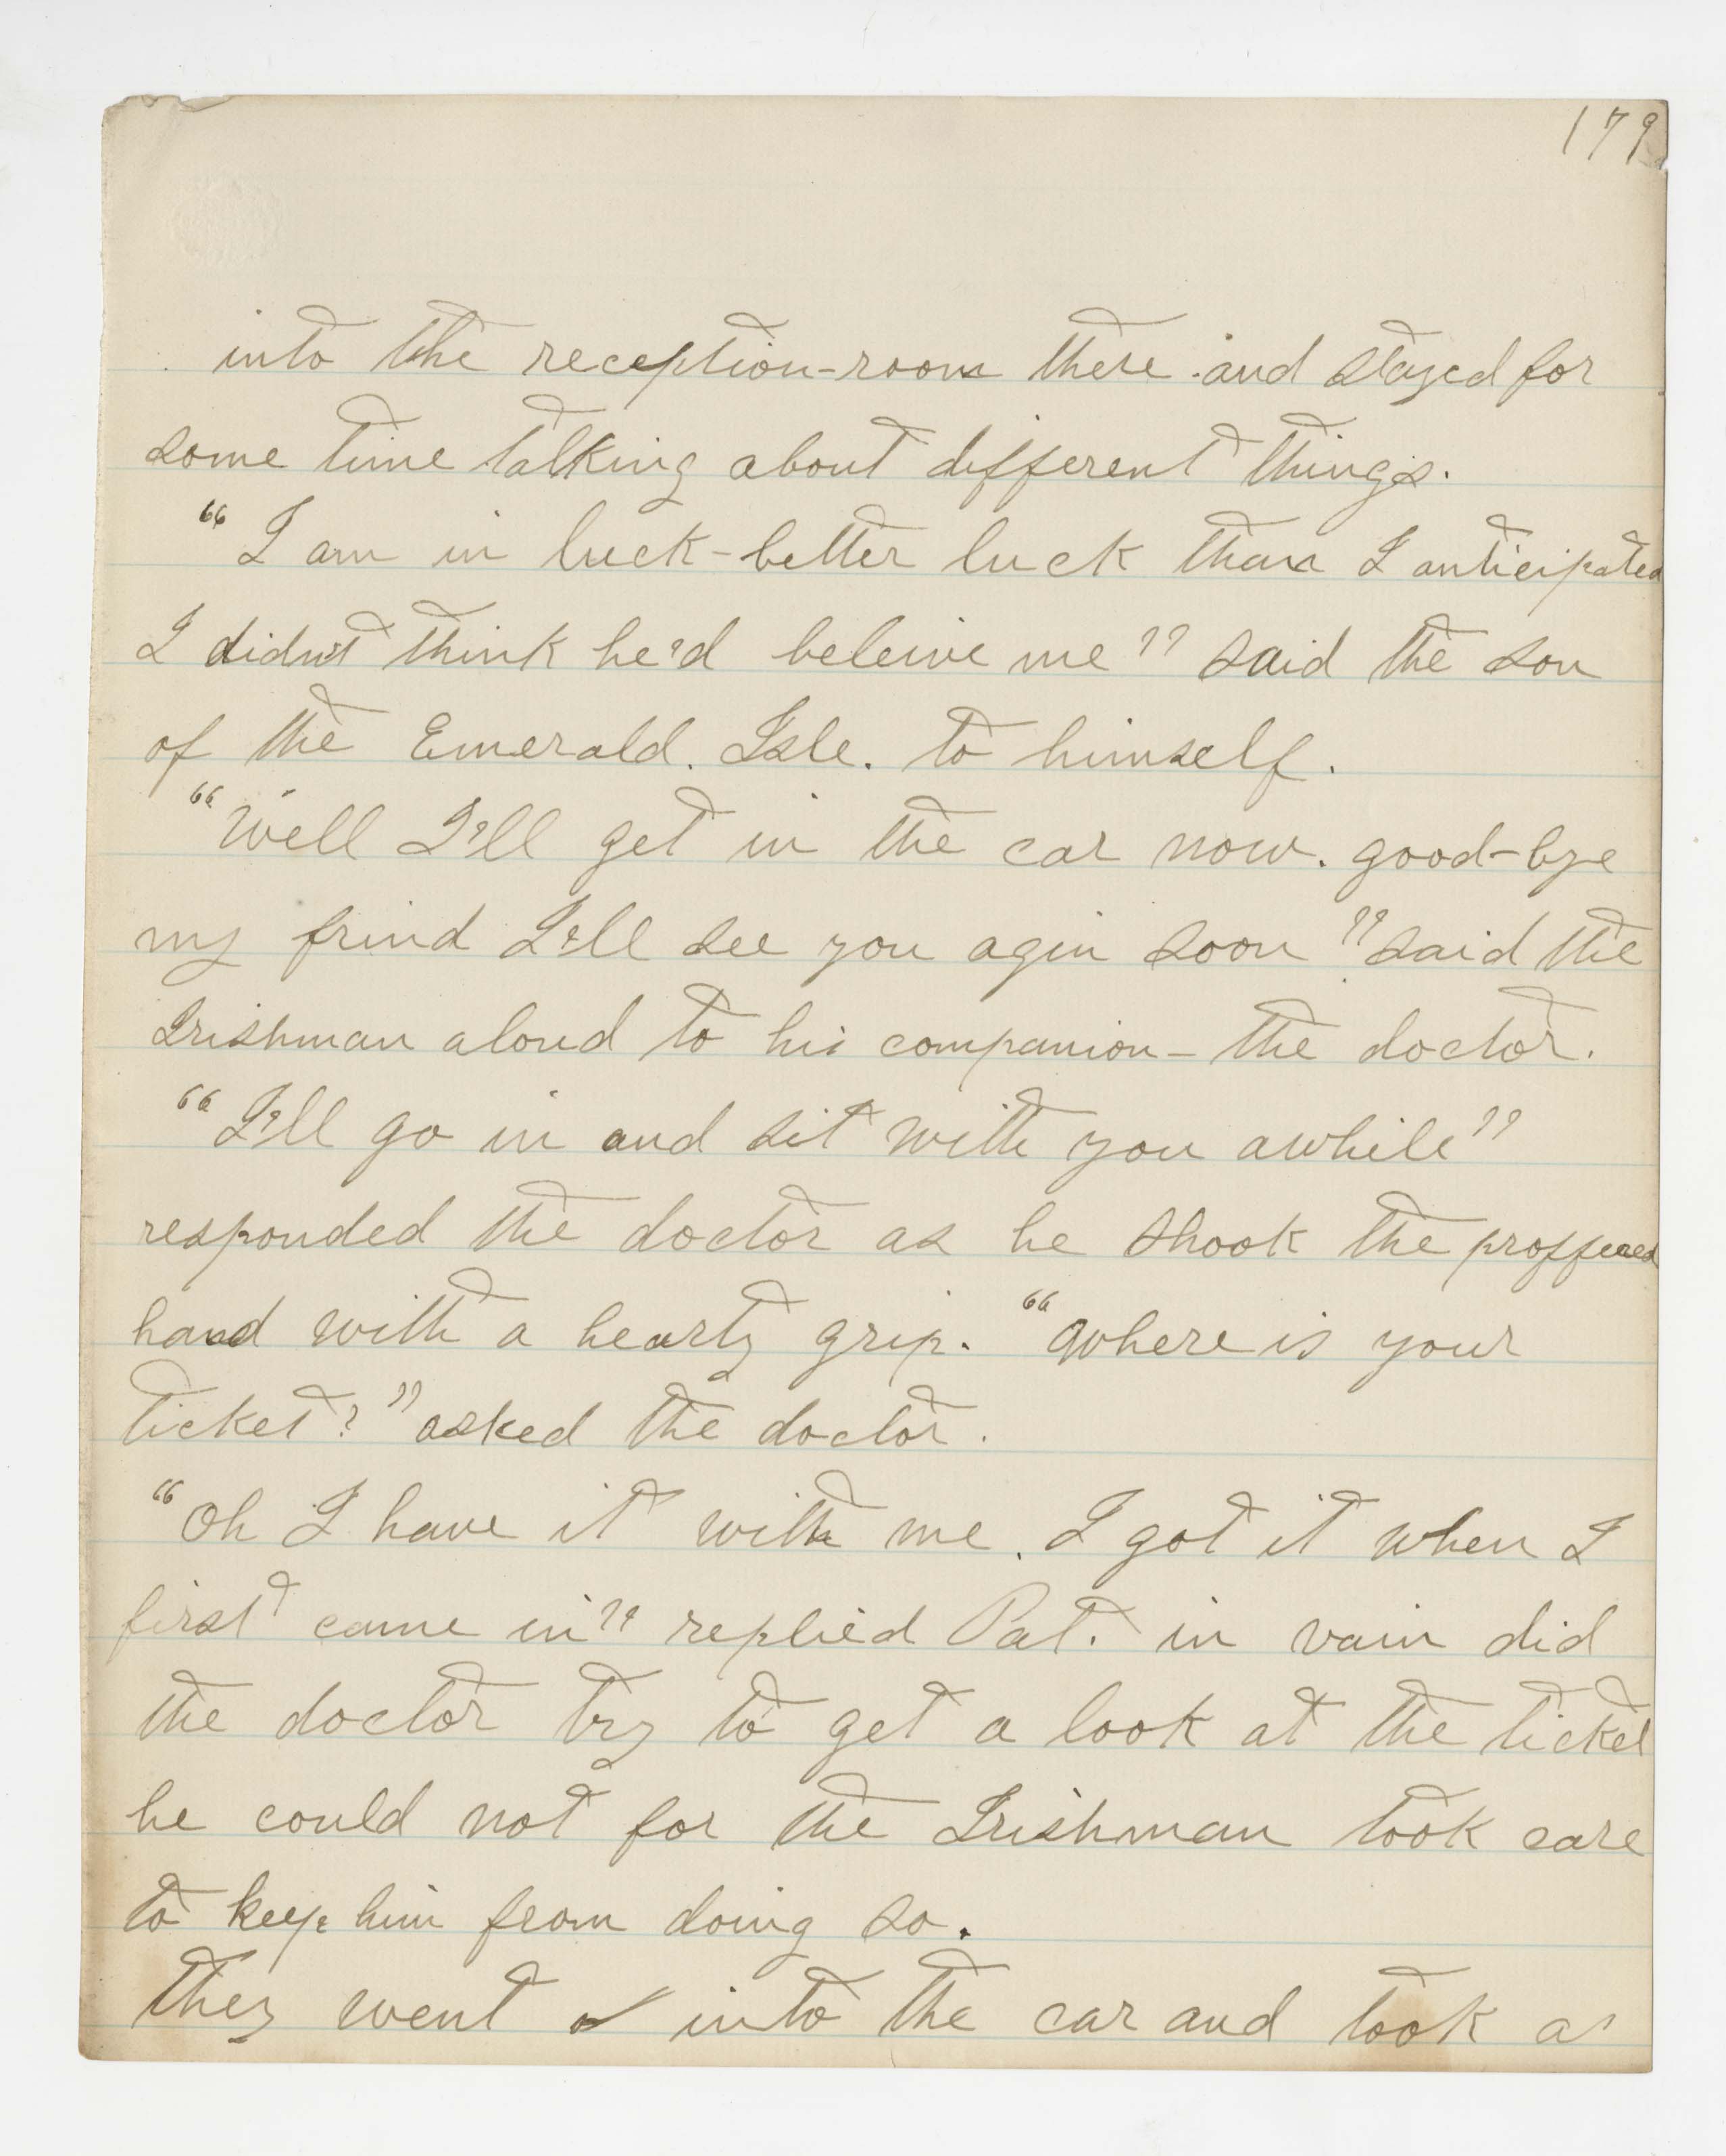 179
into the reception-room there and stayed for
some time talking about different things.
"I am in luck-better luck than I anticipated
I didn't think he'd beleive me" said the son
of the Emerald. Isle. to himself.
"Well I'll get in the car now. good-bye
my frind I'll see you agin soon" said the
Irishman aloud to his companion- the doctor.
"I'll go in and sit with you awhile"
responded the doctor as he shook the proffered
hand with a hearty grip. "Where is your
ticket?" asked the doctor.
"Oh I have it with me. I got it when I
first came in" replied Pat. in vain did
the doctor try to get a look at the ticket
he could not for the Irishman took care
to keep him from doing so.
They went into the car and took a